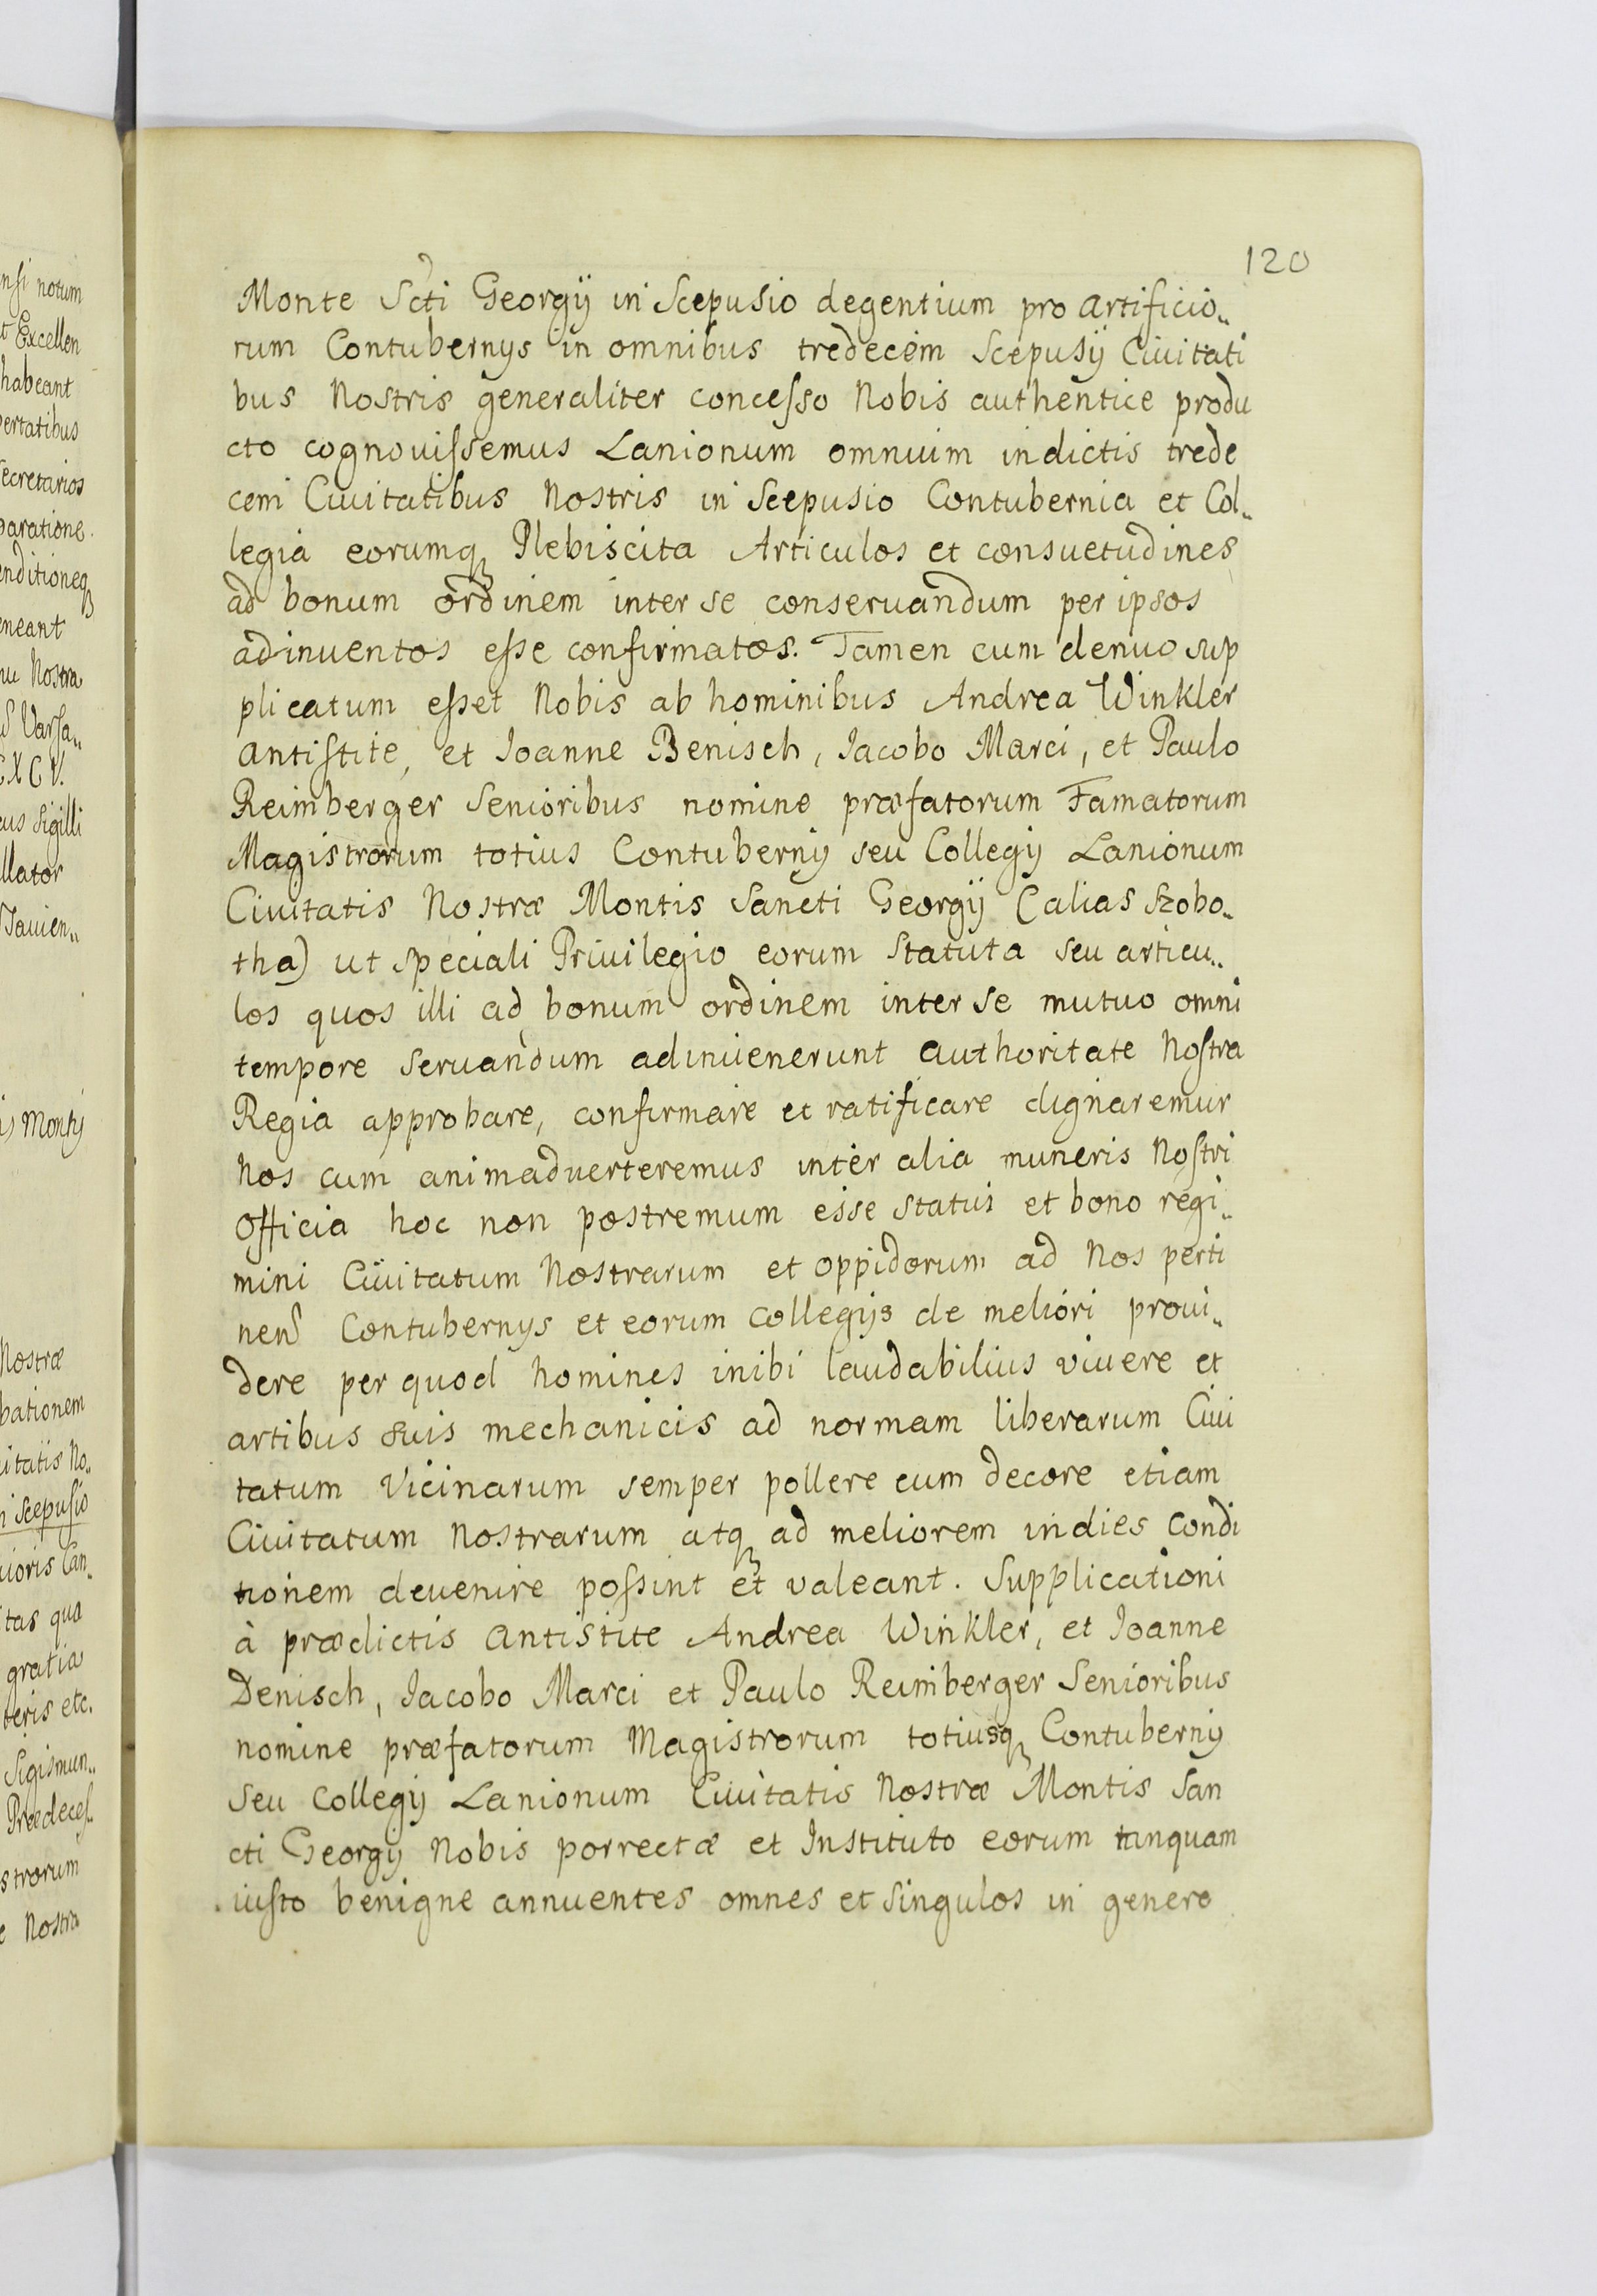 120
Monte Scti Georgÿ in Scepusio degentium pro artificio„
rum Contubernÿs in omnibus tredecem Scepusÿ Ciuitati
bus Nostris generaliter concesso Nobis authentice produ
cto cognouissemus Lanionum omnium in dictis trede
cem Ciuitatibus Nostris in Scepusio Contubernia et Col„
legia eorumq Plebiscita Articulos et consuetudines
ad bonum ordinem inter se conseruandum per ipsos
adinuentos esse confirmatos. Tamen cum denuo sup
plicatum esset Nobis ab hominibus Andrea Winkler
antistite, et Joanne Benisch, Jacobo Marci, et Paulo
Reimberger Senioribus nomine præfatorum Famatorum
Magistrorum totius Contubernÿ seu Collegÿ Lanionum
Ciuitatis Nostræ Montis Sancti Georgÿ (alias Szobo„
tha) ut speciali Priuilegio eorum Statuta seu articu„
los quos illi ad bonum ordinem inter se mutuo omni
tempore seruandum adinuenerunt authoritate Nostra
Regia approbare, confirmare et ratificare dignaremur
Nos cum animaduerteremus inter alia muneris Nostri
Officia hoc non postremum esse statui et bono regi„
mini Ciuitatum Nostrarum et oppidorum ad Nos perti
nen Contubernÿs et eorum Collegÿs de meliori proui„
dere per quod homines inibi laudabilius viuere et
artibus suis mechanicis ad normam liberarum Ciui
tatum Vicinarum semper pollere cum decore etiam
Ciuitatum Nostrarum atq ad meliorem indies Condi
tionem deuenire possint et valeant. Supplicationi
à prædictis Antistite Andrea Winkler, et Joanne
Denisch, Jacobo Marci et Paulo Reimberger Senioribus
nomine præfatorum Magistrorum totiusq Contubernÿ
seu Collegÿ Lanionum Ciuitatis Nostræ Montis San
cti Georgÿ Nobis porrectæ et Instituto eorum tanquam
iusto benigne annuentes omnes et singulos in genere